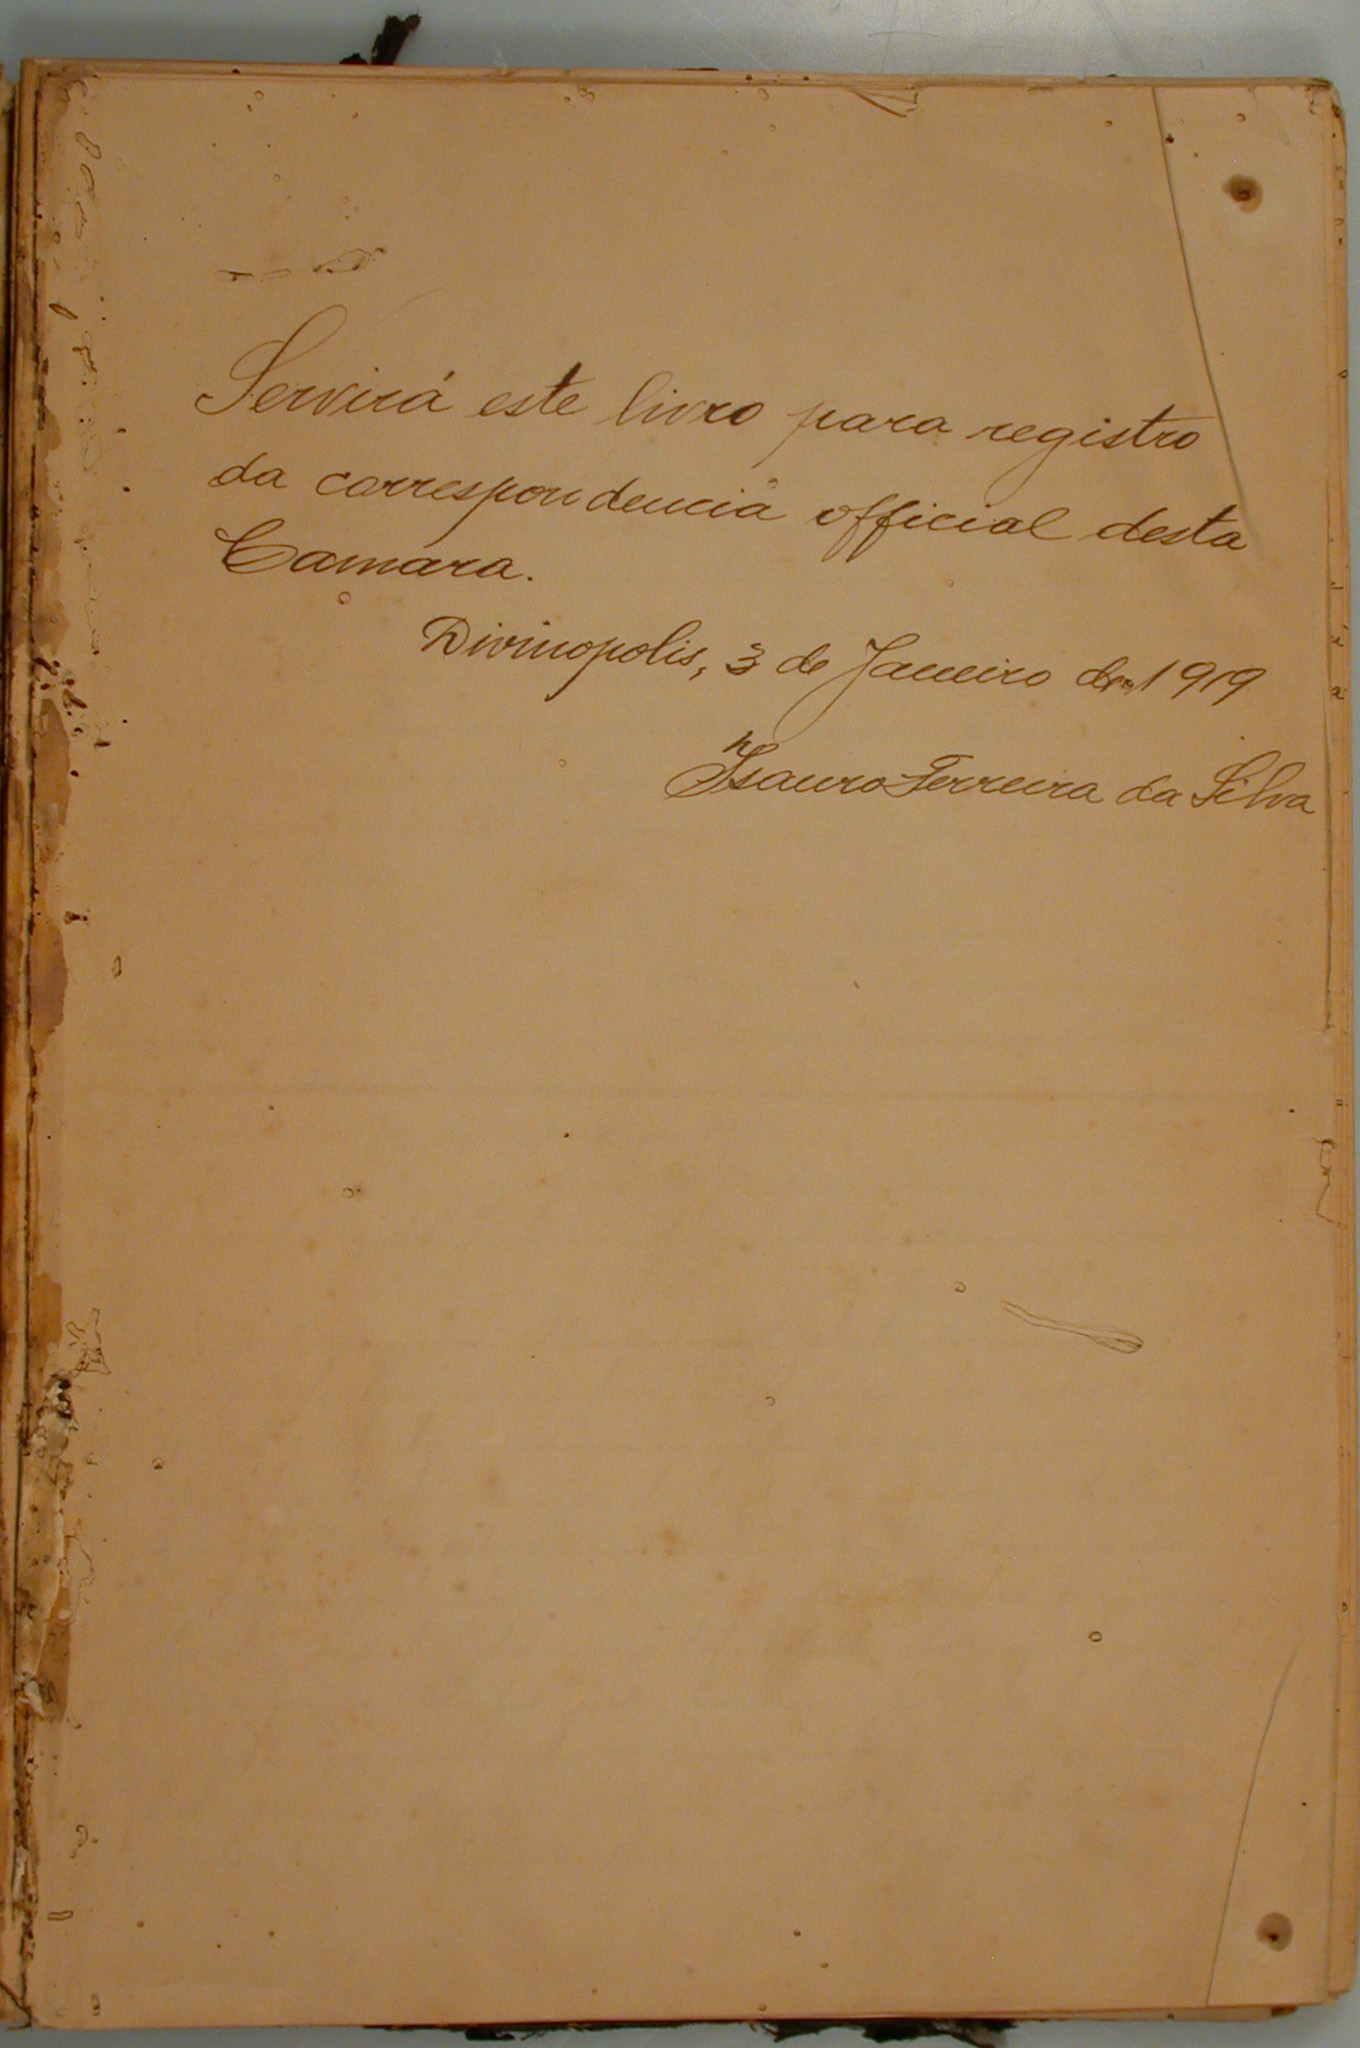 Servirá este livro para registro
da correspondencia official desta
Camara.
Divinopolis, 3 de Janeiro de 1919
Isauro Ferreira da Silva